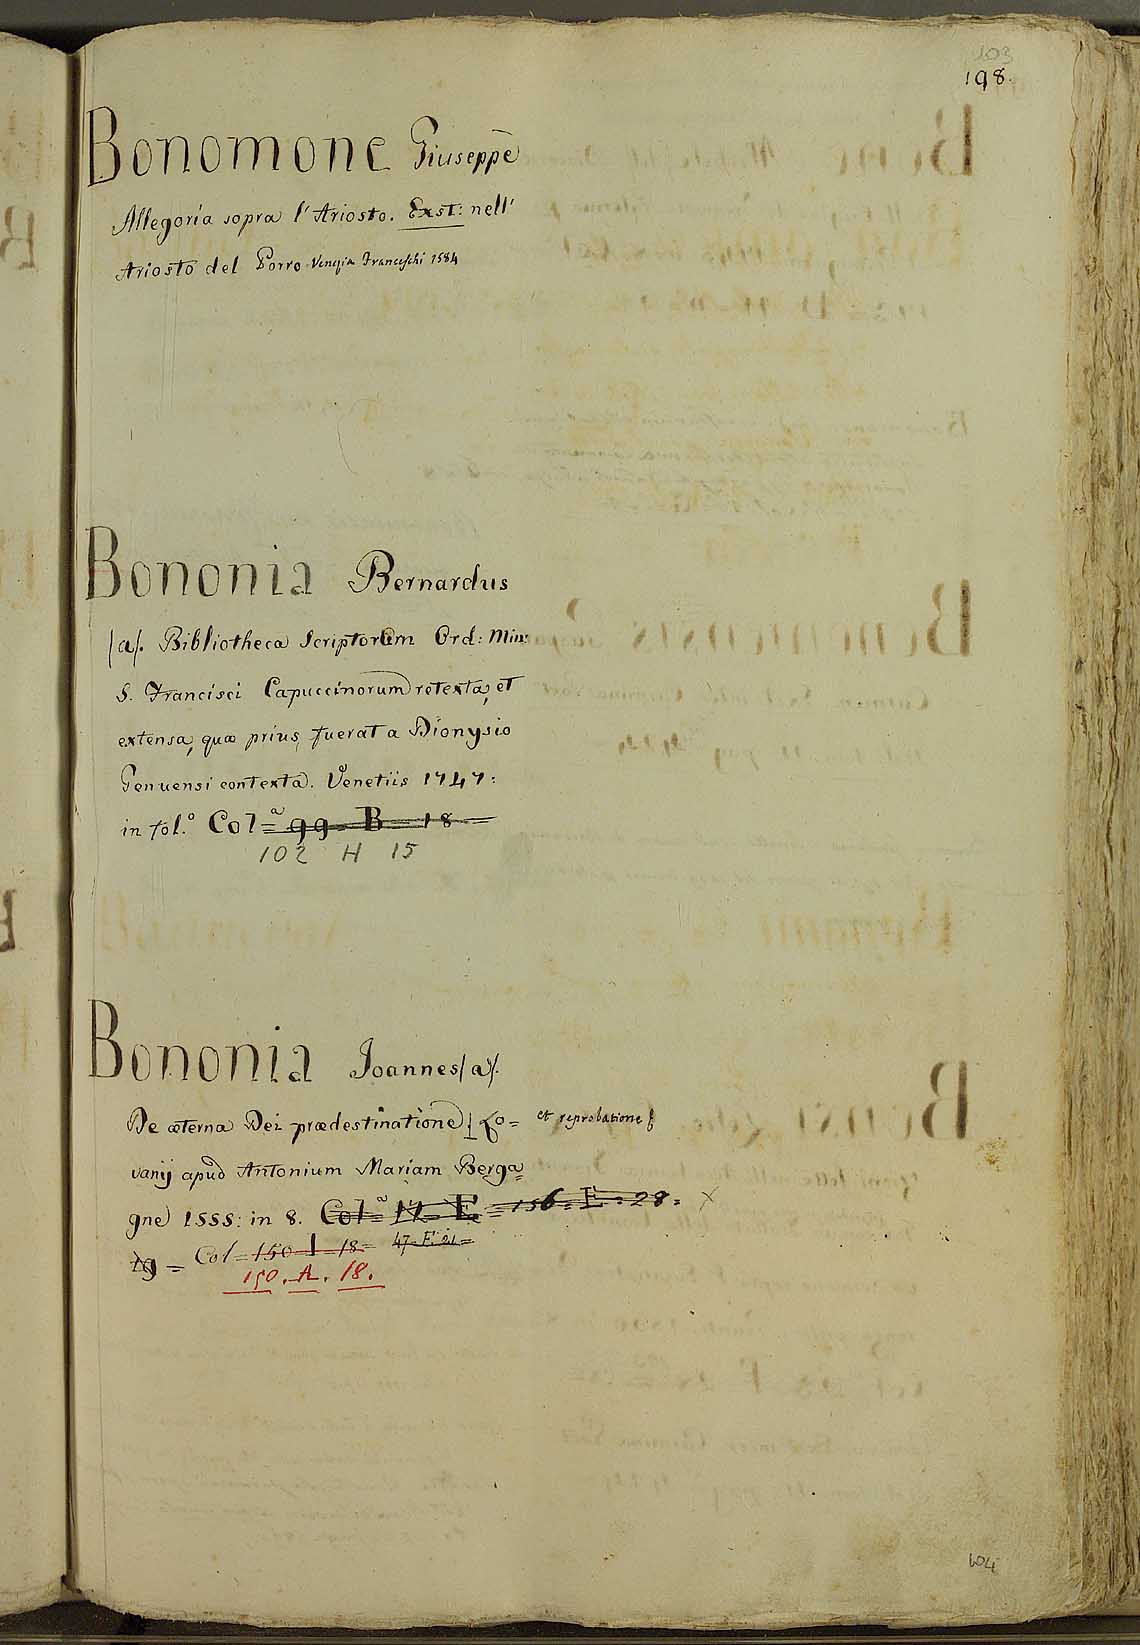 103
198.
Bonomone Giuseppe
Allegoria sopra l'Ariosto. Exst: nell'
Ariosto del Porro Venezia Franceschi 1584
Bononia Bernardus
/a/. Bibliotheca Scriptorum Ord: Min:
S. Francisci Capuccinorum retexta, et
extensa, quæ prius fuerat a Dionysio
Genuensi contexta. Venetiis 1747:
in fol.º Col=ª 99 B 18
102 H 15
Bononia Joannes /a/.
De æterna Dei prædestinatione Lo= et reprobatione
vanij apud Antonium Mariam Berga=
gne 1555: in 8. Col=ª 17 E =156= E =28= x
19 = Col=150 I 18= 47= F. 21=
150. A. 18.
104